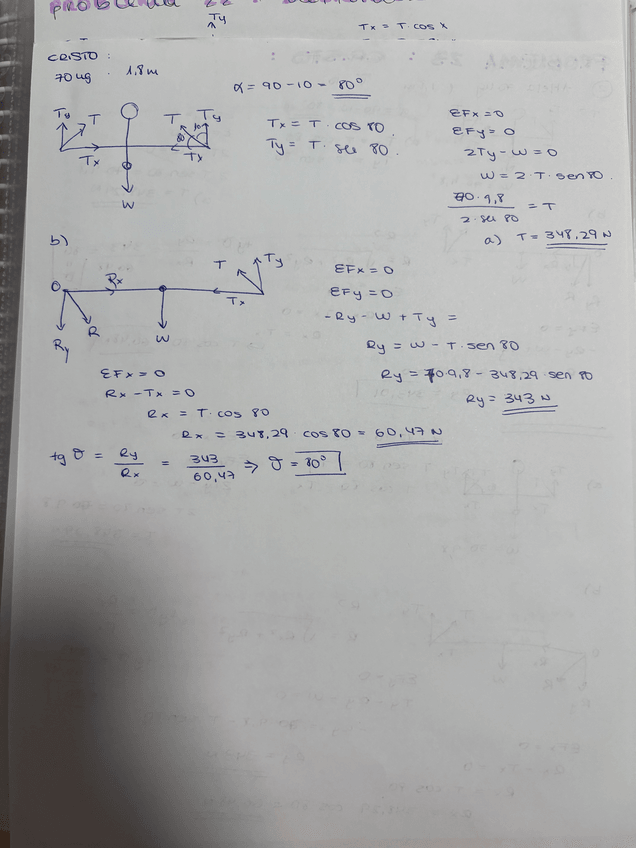 PROBLEMA 22 :
Ty
Tx = T·cos x
CRISTO :
70 kg. 1,8 m
α = 90 - 10 = 80°
Ty T T Ty
Tx Tx
W
Tx = T· cos 80.
Ty = T· sen 80.
ΣFx = 0
ΣFy = 0
2Ty - W = 0
W = 2· T· sen 80.
70·9,8 / 2·sen 80 = T
a) T = 348,29 N
b)
T Ty
O Rx Tx
Ry R W
ΣFx = 0
ΣFy = 0
-Ry - W + Ty =
Ry = W - T· sen 80
Ry = 70·9,8 - 348,29· sen 80
Ry = 343 N
ΣFx = 0
Rx - Tx = 0
Rx = T· cos 80
Rx = 348,29· cos 80 = 60,47 N
tg θ = Ry / Rx = 343 / 60,47 => θ = 80°